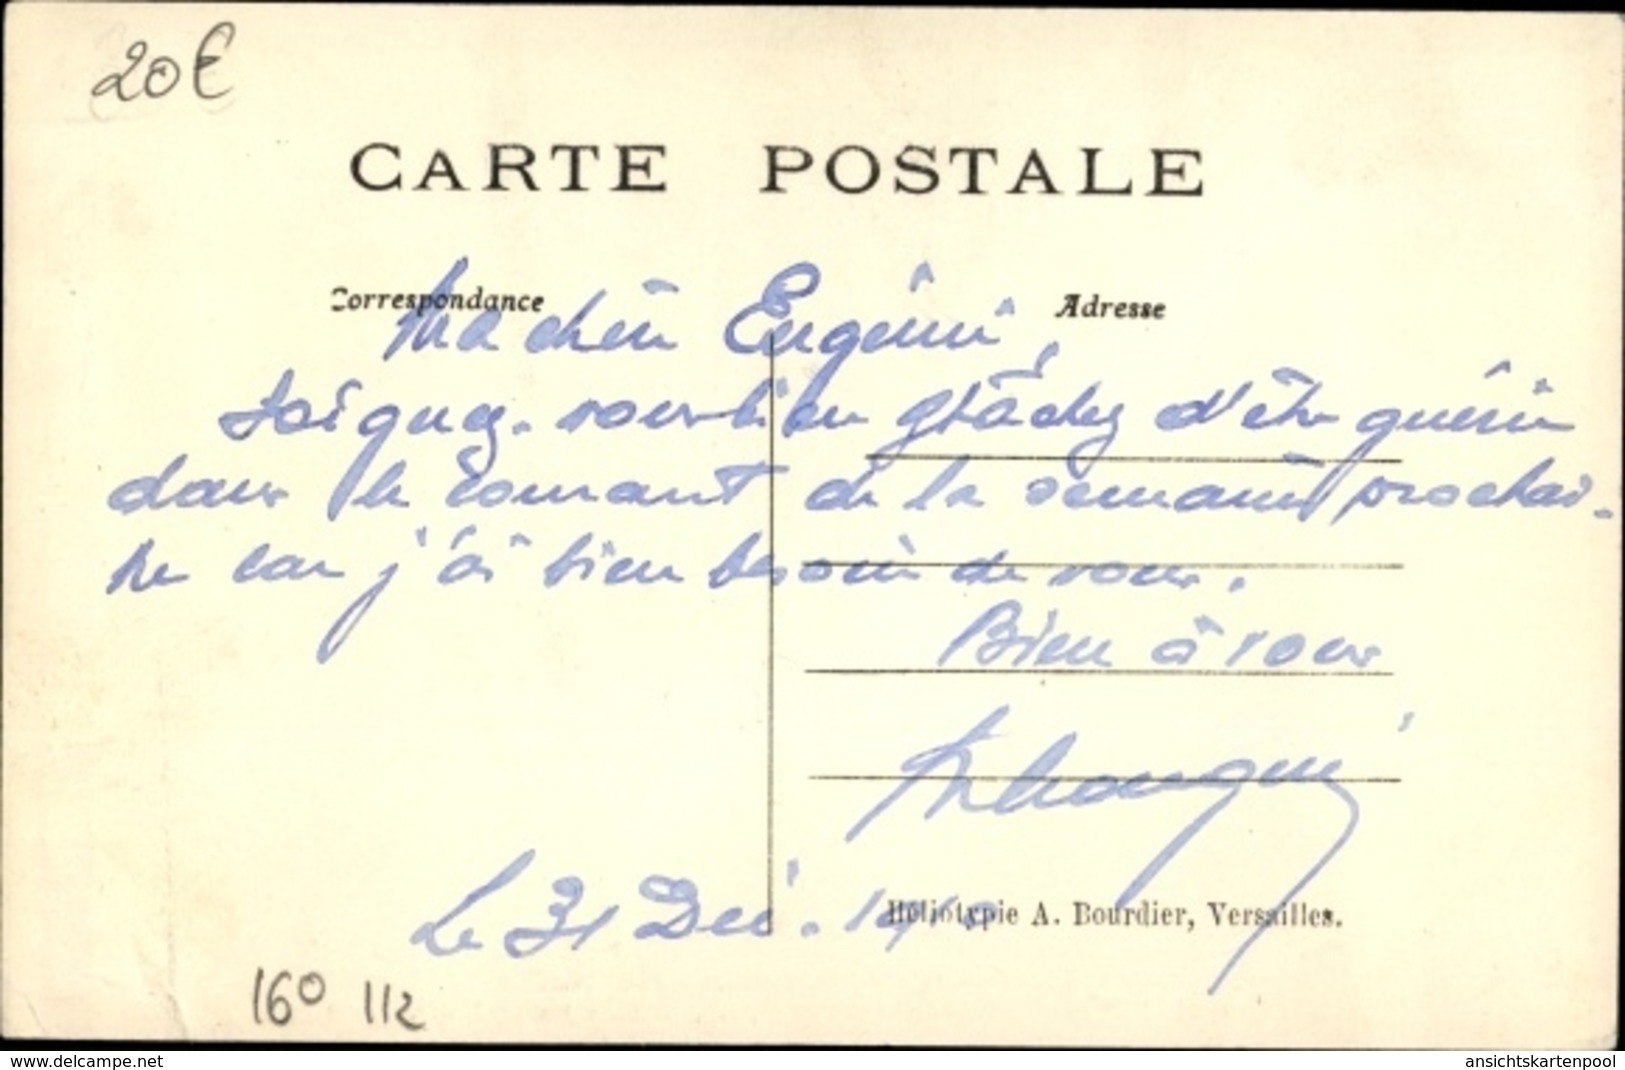 20€
CARTE POSTALE
Correspondance
Adresse
Ma chère Eugénie,
Soignez-vous bien tâchez d'être guérie
dans le courant de la semaine prochai-
ne car j'ai bien besoin de vous.
Bien à vous
Le 31 Déc.
Héliotypie A. Bourdier, Versailles.
160 112
www.delcampe.net
ansichtskartenpool